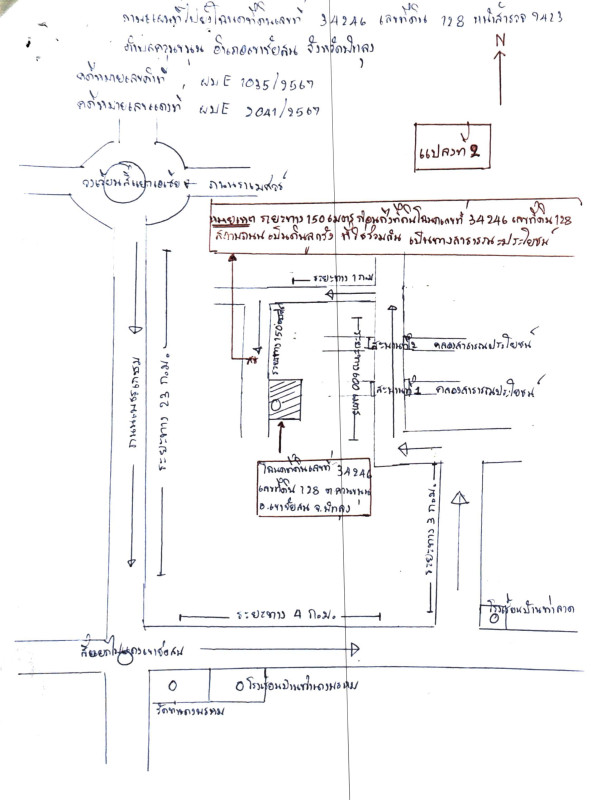 ภาพแผนที่ไปยังโฉนดที่ดินเลขที่ 34246 เลขที่ดิน 128 หน้าสำรวจ 9423
ตำบลควนขนุน อำเภอเขาชัยสน จังหวัดพัทลุง
คดีหมายเลขดำที่ ผบE 1035/2567
คดีหมายเลขแดงที่ ผบE 2041/2567
N
แปลงที่ 2
วงเวียนสี่แยกเอเชีย
ถนนราเมศวร์
หมายเหตุ ระยะทาง 150 เมตร ก่อนถึงที่ดินโฉนดเลขที่ 34246 เลขที่ดิน 128
สภาพถนน เป็นดินลูกรัง ที่ใช้ร่วมกัน เป็นทางสาธารณะประโยชน์
ระยะทาง 1 ก.ม
ระยะทาง 150 เมตร
ระยะทาง 600 เมตร
สะพานที่ 2 คลองสาธารณประโยชน์
สะพานที่ 1 คลองสาธารณประโยชน์
ถนนเพชรเกษม
ระยะทาง 23 ก.ม.
โฉนดที่ดินเลขที่ 34246
เลขที่ดิน 128 ต ควนขนุน
อ.เขาชัยสน จ.พัทลุง
ระยะทาง 3 ก.ม.
ระยะทาง 4 ก.ม.
โรงเรียนบ้านท่าลาด
สี่แยกไฟแดงเขาชัยสน
โรงเรียนบ้าน